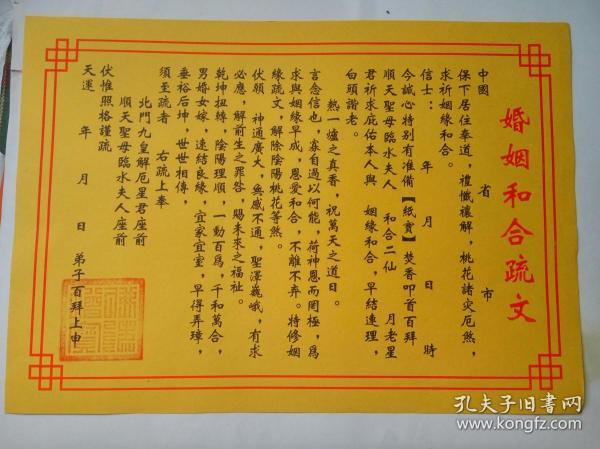 婚姻和合疏文
中國 省 市
保下居住奉道，禮懺禳解，桃花諸灾厄煞，
求祈姻緣和合。
信士： 年 月 日 時
今誠心特別有准備【紙寳】焚香叩首百拜
順天聖母臨水夫人 和合二仙 月老星
君祈求庇佑本人與 姻緣和合，早結連理，
白頭諧老。
熱一爐之真香，祝萬天之道日。
言念信也，寡自過以何能，荷神恩而罔極，爲
求與姻緣早成，恩愛和合，不離不弃。特修姻
緣疏文，解除陰陽桃花等煞。
伏願 神通廣大，無感不通，聖澤巍峨，有求
必應，解前生之罪咎，賜未來之福祉。
乾坤扭轉，陰陽理順，一動百爲，千和萬合，
男婚女嫁，速結良緣，宜家宜室，早得弄璋，
垂裕后坤，世世相傳，
須至疏者 右疏上奉
北門九皇解厄星君座前
順天聖母臨水夫人座前
伏惟照格謹疏
天運 年 月 日 弟子百拜上申
孔夫子旧書网
www.kongfz.com